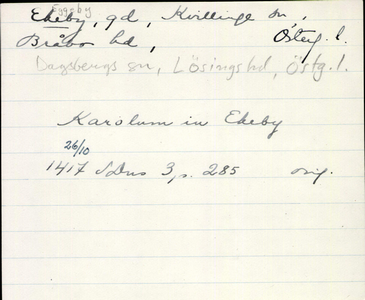 Eggeby
Ekeby, gd, Kvillinge sn,
Bråbo hd, Österg. l.
Dagsbergs sn, Lösings hd, Östg. l.
Karolum in Ekeby
26/10
1417 SDns 3, s. 285 orig.